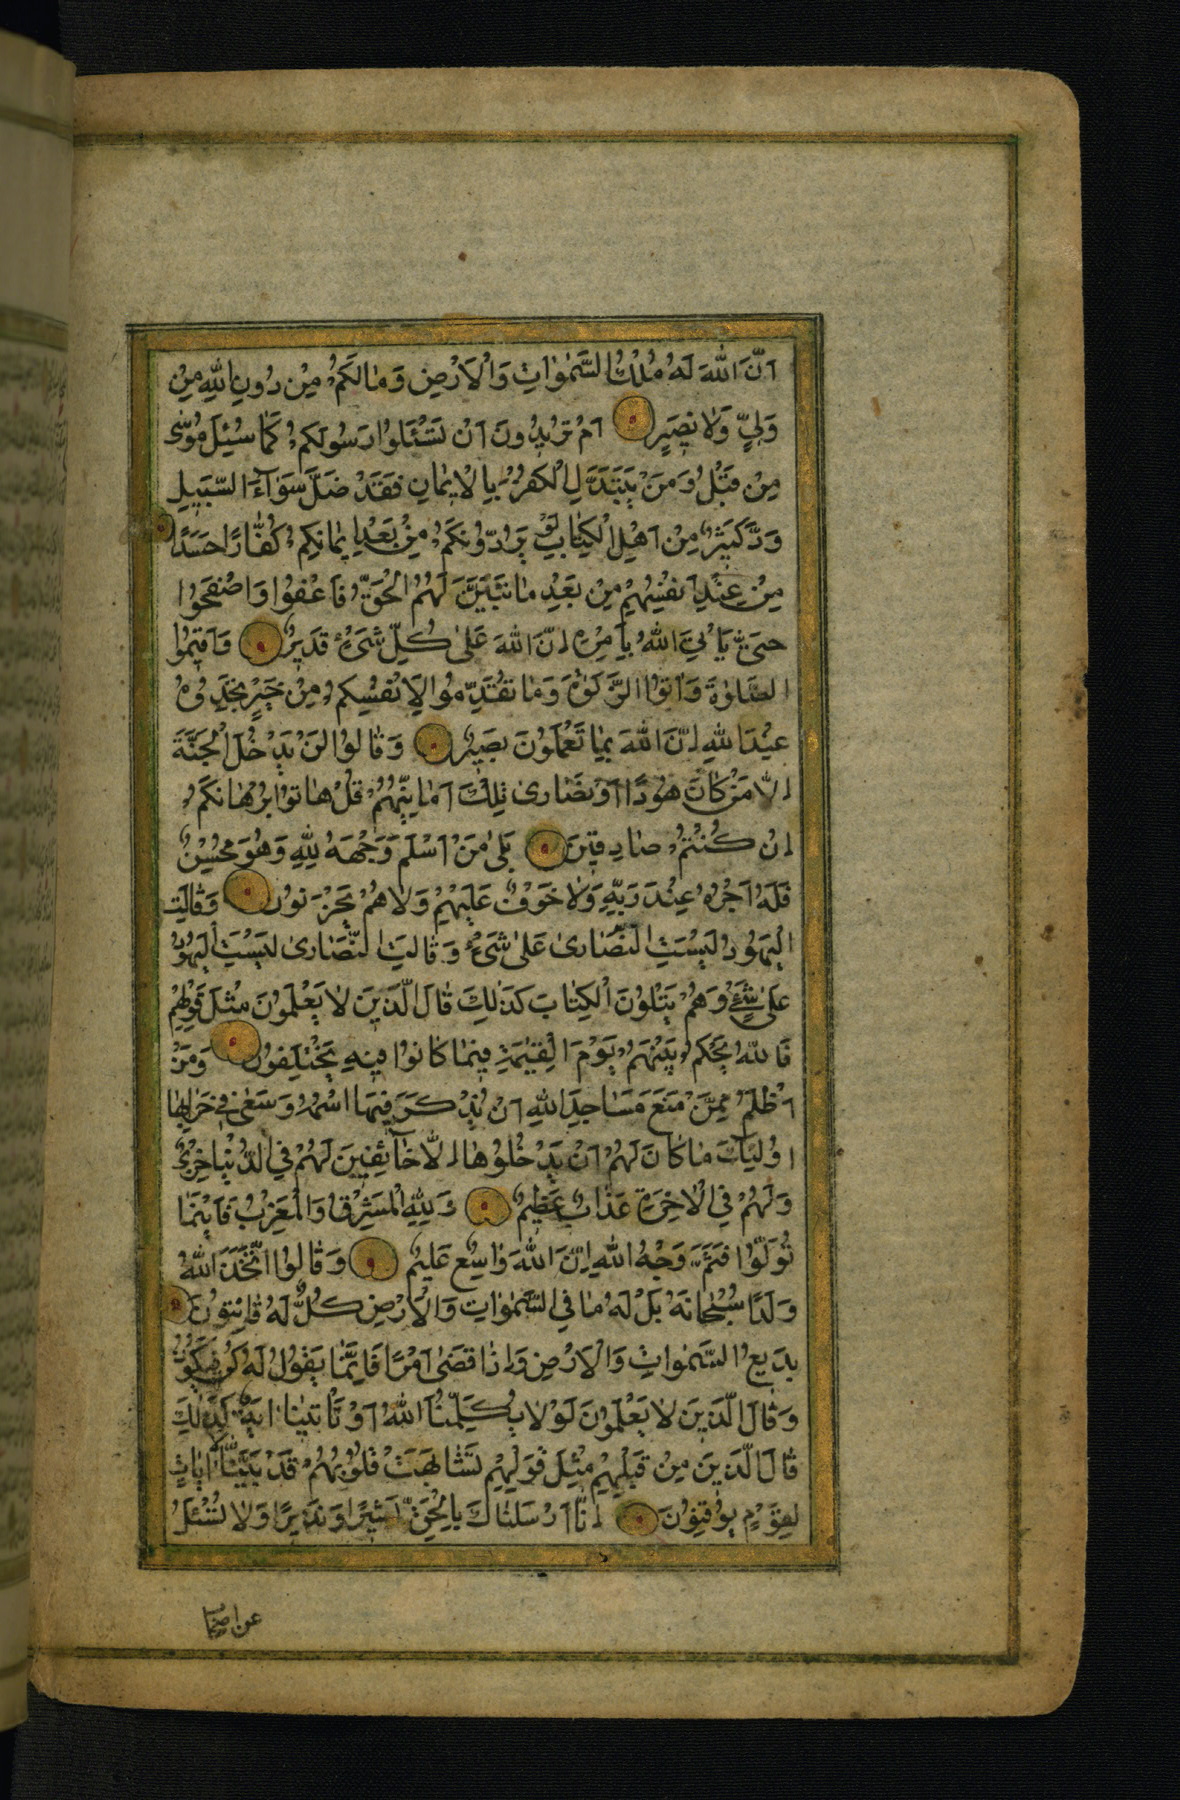 اَنَّ اللّٰهَ لَهُ مُلْكُ السَّمٰوٰاتِ وَالْاَرْضِ وَمٰا لَكُمْ مِنْ دُونِ اللّٰهِ مِنْ
وَلِيٍّ وَلٰا نَصِيرٍ اَمْ تُرِيدُونَ اَنْ تَسْئَلُوا رَسُولَكُمْ كَمٰا سُئِلَ مُوسٰى
مِنْ قَبْلُ وَمَنْ يَتَبَدَّلِ الْكُفْرَ بِالْاِيمٰانِ فَقَدْ ضَلَّ سَوٰآءَ السَّبِيلِ
وَدَّ كَثِيرٌ مِنْ اَهْلِ الْكِتٰابِ لَوْ يَرُدُّونَكُمْ مِنْ بَعْدِ اِيمٰانِكُمْ كُفّٰارًا حَسَدًا
مِنْ عِنْدِ اَنْفُسِهِمْ مِنْ بَعْدِ مٰا تَبَيَّنَ لَهُمُ الْحَقُّ فَاعْفُوا وَاصْفَحُوا
حَتّٰى يَاْتِيَ اللّٰهُ بِاَمْرِهِ اِنَّ اللّٰهَ عَلٰى كُلِّ شَيْءٍ قَدِيرٌ وَاَقِيمُوا
الصَّلٰوةَ وَاٰتُوا الزَّكٰوةَ وَمٰا تُقَدِّمُوا لِاَنْفُسِكُمْ مِنْ خَيْرٍ تَجِدُوهُ
عِنْدَ اللّٰهِ اِنَّ اللّٰهَ بِمٰا تَعْمَلُونَ بَصِيرٌ وَقٰالُوا لَنْ يَدْخُلَ الْجَنَّةَ
اِلّٰا مَنْ كٰانَ هُودًا اَوْ نَصٰارىٰ تِلْكَ اَمٰانِيُّهُمْ قُلْ هٰاتُوا بُرْهٰانَكُمْ
اِنْ كُنْتُمْ صٰادِقِينَ بَلٰى مَنْ اَسْلَمَ وَجْهَهُ لِلّٰهِ وَهُوَ مُحْسِنٌ
فَلَهُ اَجْرُهُ عِنْدَ رَبِّهِ وَلٰا خَوْفٌ عَلَيْهِمْ وَلٰا هُمْ يَحْزَنُونَ وَقٰالَتِ
الْيَهُودُ لَيْسَتِ النَّصٰارىٰ عَلٰى شَيْءٍ وَقٰالَتِ النَّصٰارىٰ لَيْسَتِ الْيَهُودُ
عَلٰى شَيْءٍ وَهُمْ يَتْلُونَ الْكِتٰابَ كَذٰلِكَ قٰالَ الَّذِينَ لٰا يَعْلَمُونَ مِثْلَ قَوْلِهِمْ
فَاللّٰهُ يَحْكُمُ بَيْنَهُمْ يَوْمَ الْقِيٰمَةِ فِيمٰا كٰانُوا فِيهِ يَخْتَلِفُونَ وَمَنْ
اَظْلَمُ مِمَّنْ مَنَعَ مَسٰاجِدَ اللّٰهِ اَنْ يُذْكَرَ فِيهَا اسْمُهُ وَسَعٰى فِي خَرٰابِهٰا
اُولٰئِكَ مٰا كٰانَ لَهُمْ اَنْ يَدْخُلُوهٰا اِلّٰا خٰآئِفِينَ لَهُمْ فِي الدُّنْيٰا خِزْيٌ
وَلَهُمْ فِي الْاٰخِرَةِ عَذٰابٌ عَظِيمٌ وَلِلّٰهِ الْمَشْرِقُ وَالْمَغْرِبُ فَاَيْنَمٰا
تُوَلُّوا فَثَمَّ وَجْهُ اللّٰهِ اِنَّ اللّٰهَ وٰاسِعٌ عَلِيمٌ وَقٰالُوا اتَّخَذَ اللّٰهُ
وَلَدًا سُبْحٰانَهُ بَلْ لَهُ مٰا فِي السَّمٰوٰاتِ وَالْاَرْضِ كُلٌّ لَهُ قٰانِتُونَ
بَدِيعُ السَّمٰوٰاتِ وَالْاَرْضِ وَاِذٰا قَضٰى اَمْرًا فَاِنَّمٰا يَقُولُ لَهُ كُنْ فَيَكُونُ
وَقٰالَ الَّذِينَ لٰا يَعْلَمُونَ لَوْلٰا يُكَلِّمُنَا اللّٰهُ اَوْ تَاْتِينٰا اٰيَةٌ كَذٰلِكَ
قٰالَ الَّذِينَ مِنْ قَبْلِهِمْ مِثْلَ قَوْلِهِمْ تَشٰابَهَتْ قُلُوبُهُمْ قَدْ بَيَّنَّا الْاٰيٰاتِ
لِقَوْمٍ يُوقِنُونَ اِنّٰا اَرْسَلْنٰاكَ بِالْحَقِّ بَشِيرًا وَنَذِيرًا وَلٰا تُسْئَلُ
عن اصحاب